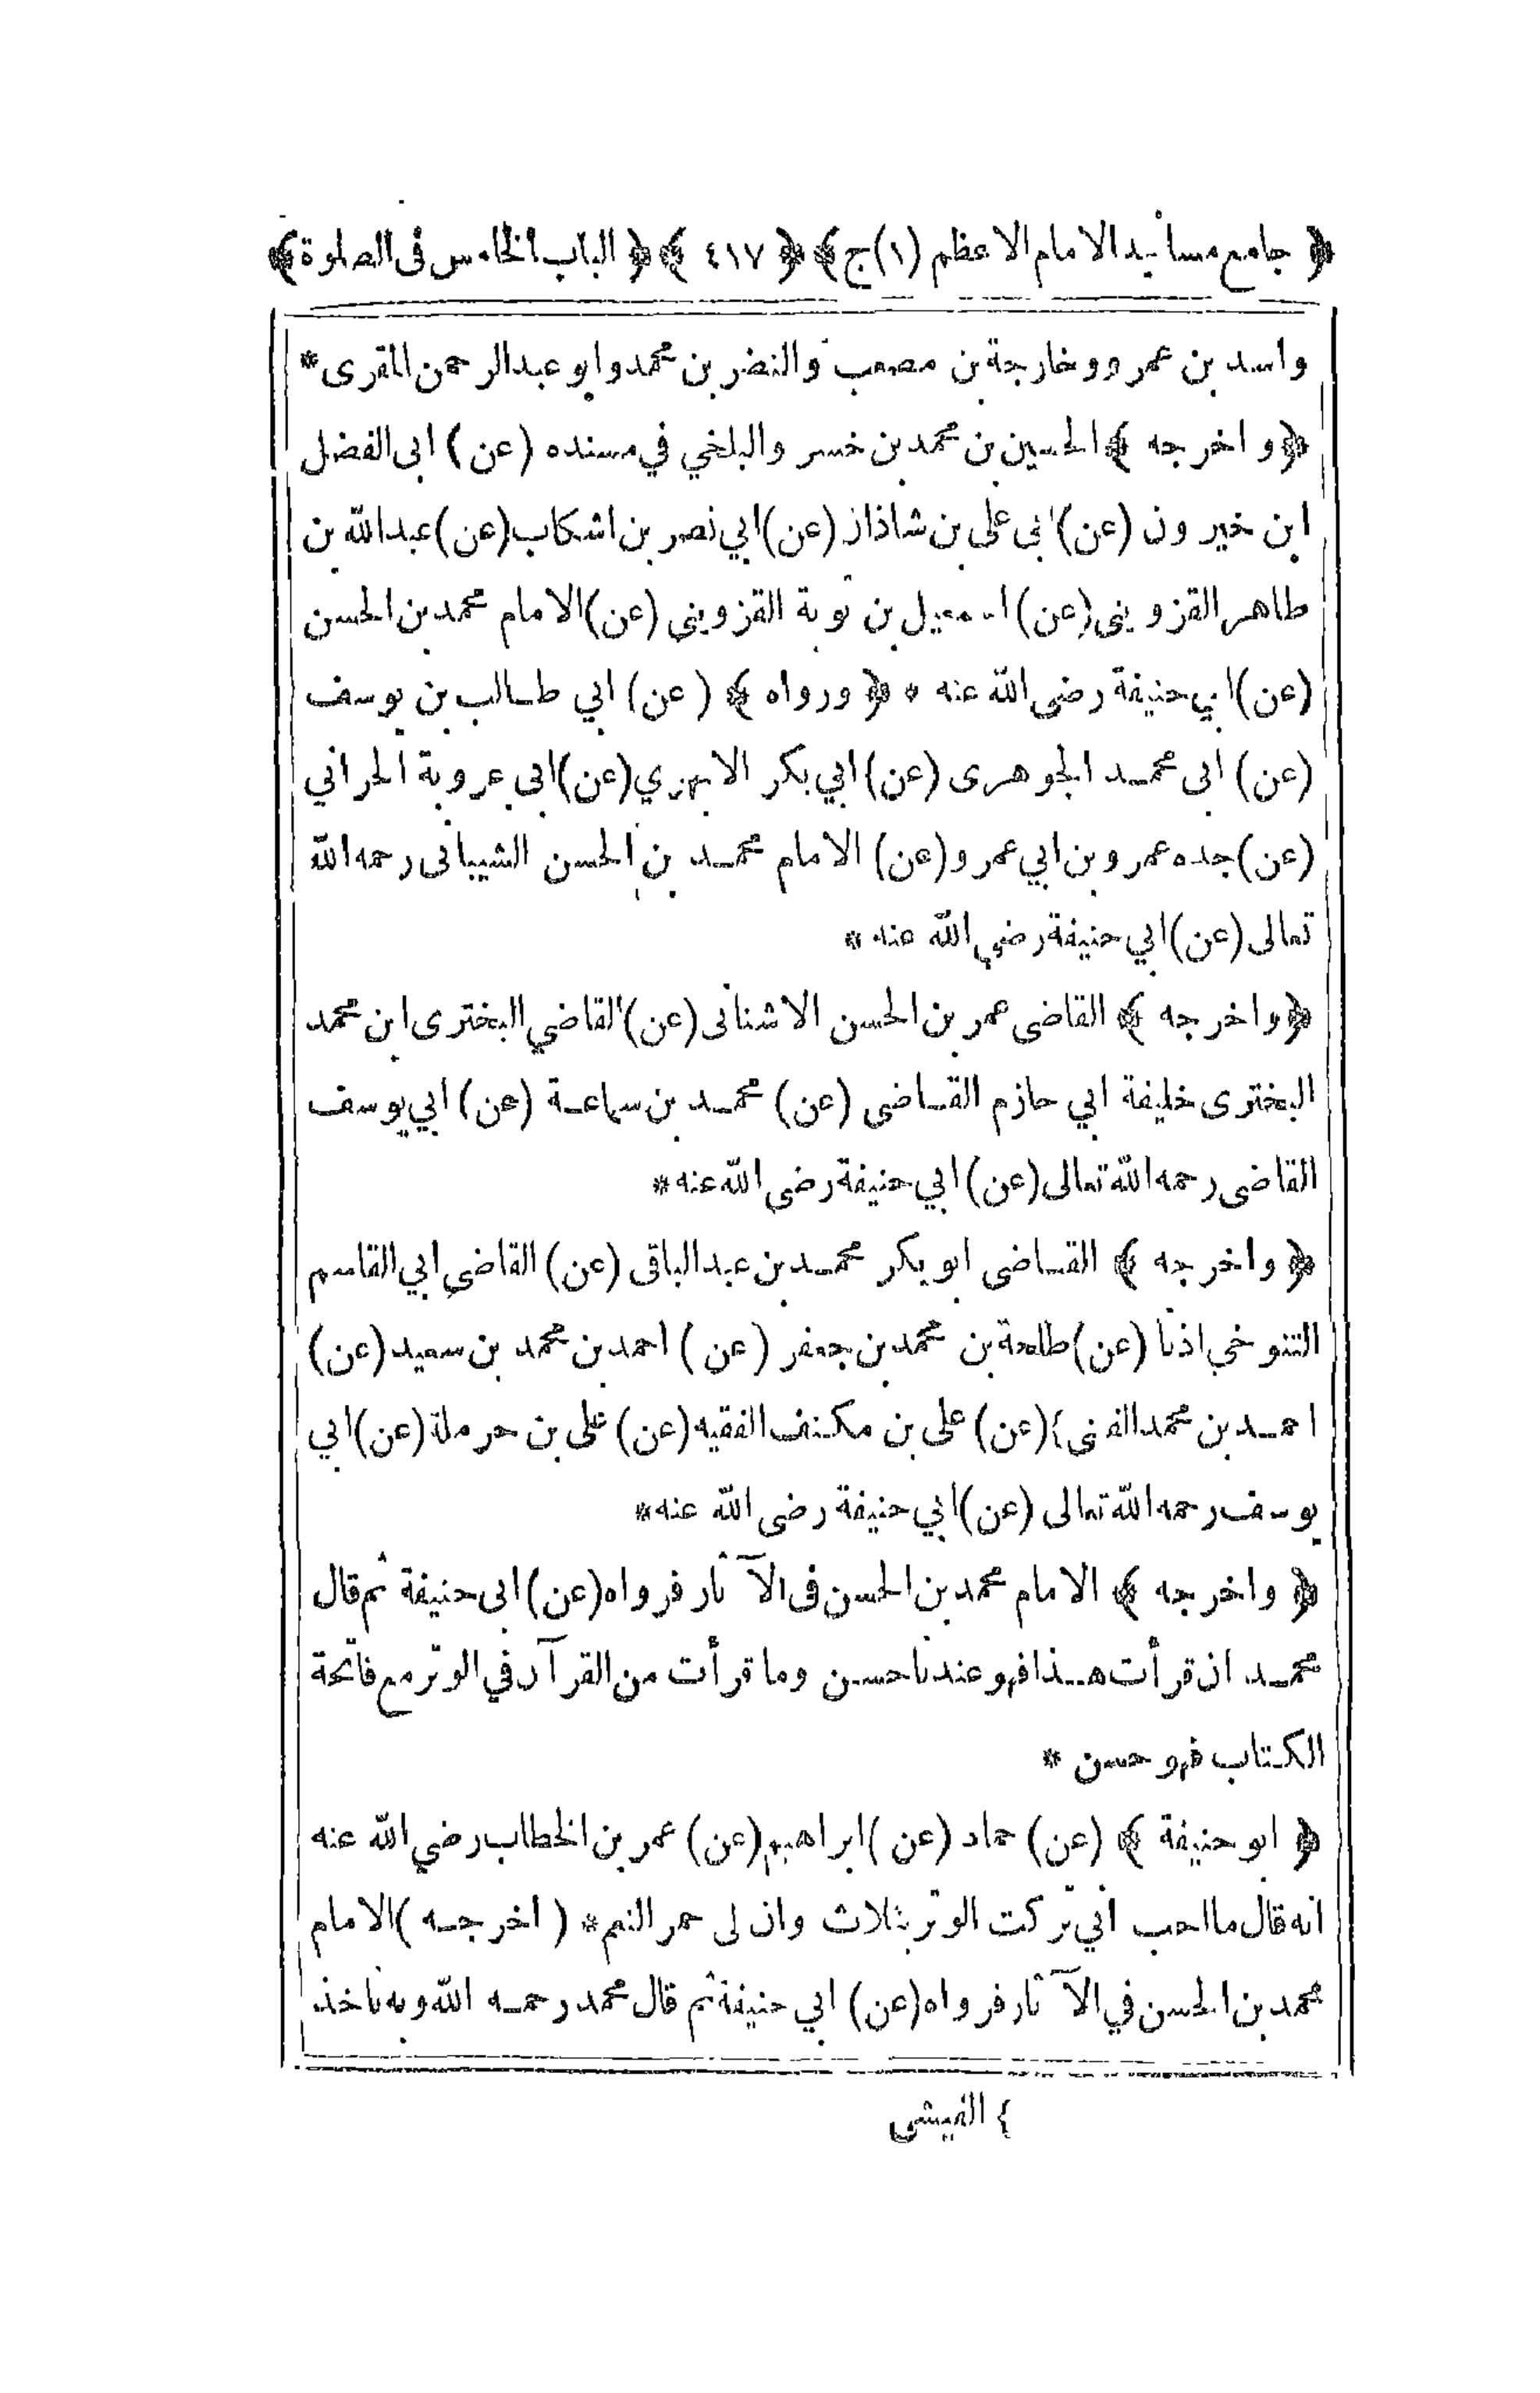 ﴿ جامع مسانيد الامام الاعظم (١) ج ﴾ ﴿ ٤١٧ ﴾ ﴿ الباب الخامس فى الصلوة ﴾
واسد بن عمرو وخارجة بن مصعب والنضر بن محمد وابو عبدالرحمن المقرى *
﴿ واخرجه ﴾ الحسين بن محمد بن خسرو البلخي في مسنده (عن) ابى الفضل
ابن خيرون (عن) ابى على بن شاذان (عن) ابي نصر بن اشكاب (عن) عبدالله بن
طاهر القزوينى (عن) اسمعيل بن توبة القزوينى (عن) الامام محمد بن الحسن
(عن) ابي حنيفة رضى الله عنه * ﴿ ورواه ﴾ (عن) ابي طالب بن يوسف
(عن) ابى محمد الجوهرى (عن) ابي بكر الابهري (عن) ابى عروبة الحراني
(عن) جده عمرو بن ابي عمرو (عن) الامام محمد بن الحسن الشيبانى رحمه الله
تعالى (عن) ابي حنيفة رضي الله عنه *
﴿ واخرجه ﴾ القاضى عمر بن الحسن الاشنانى (عن) القاضي البخترى ابن محمد
البخترى خليفة ابي حازم القاضى (عن) محمد بن سماعة (عن) ابي يوسف
القاضى رحمه الله تعالى (عن) ابي حنيفة رضى الله عنه *
﴿ واخرجه ﴾ القاضى ابو بكر محمد بن عبدالباقى (عن) القاضي ابي القاسم
التنوخي اذنا (عن) طلحة بن محمد بن جعفر (عن) احمد بن محمد بن سعيد (عن)
احمد بن محمد الفنى } (عن) على بن مكنف الفقيه (عن) على بن حرملة (عن) ابي
يوسف رحمه الله تعالى (عن) ابي حنيفة رضى الله عنه *
﴿ واخرجه ﴾ الامام محمد بن الحسن فى الآثار فرواه (عن) ابى حنيفة ثم قال
محمد ان قرأت هذا فهو عندنا حسن وما قرأت من القرآن في الوتر مع فاتحة
الكتاب فهو حسن *
﴿ ابو حنيفة ﴾ (عن) حماد (عن) ابراهيم (عن) عمر بن الخطاب رضي الله عنه
انه قال ما احب انى تركت الوتر بثلاث وان لى حمر النعم * (اخرجه) الامام
محمد بن الحسن في الآثار فرواه (عن) ابي حنيفة ثم قال محمد رحمه الله وبه ناخذ